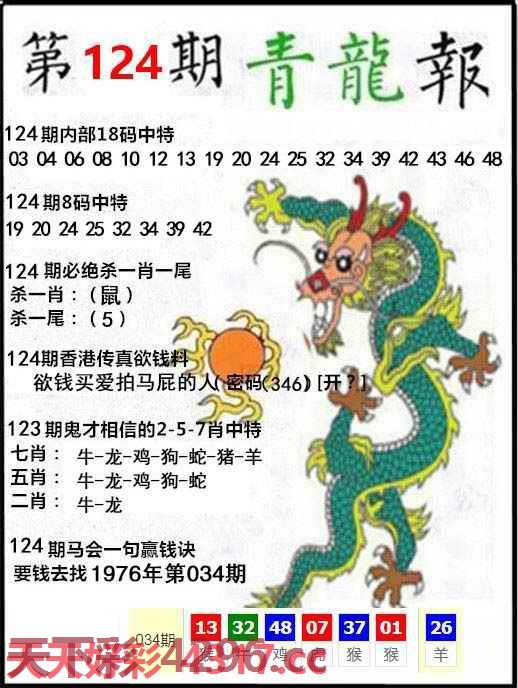 第124期青龍報
124期内部18码中特
03 04 06 08 10 12 13 19 20 24 25 32 34 39 42 43 46 48
124期8码中特
19 20 24 25 32 34 39 42
124期必绝杀一肖一尾
杀一肖:(鼠)
杀一尾:(5)
124期香港传真欲钱料
欲钱买爱拍马屁的人(密码(346)[开?]
123期鬼才相信的2-5-7肖中特
七肖: 牛-龙-鸡-狗-蛇-猪-羊
五肖: 牛-龙-鸡-狗-蛇
二肖: 牛-龙
124期马会一句赢钱诀
要钱去找1976年第034期
034期 13 32 48 07 37 01 26
猴 牛 鸡 虎 猴 猴 羊
天天好彩44296.cc